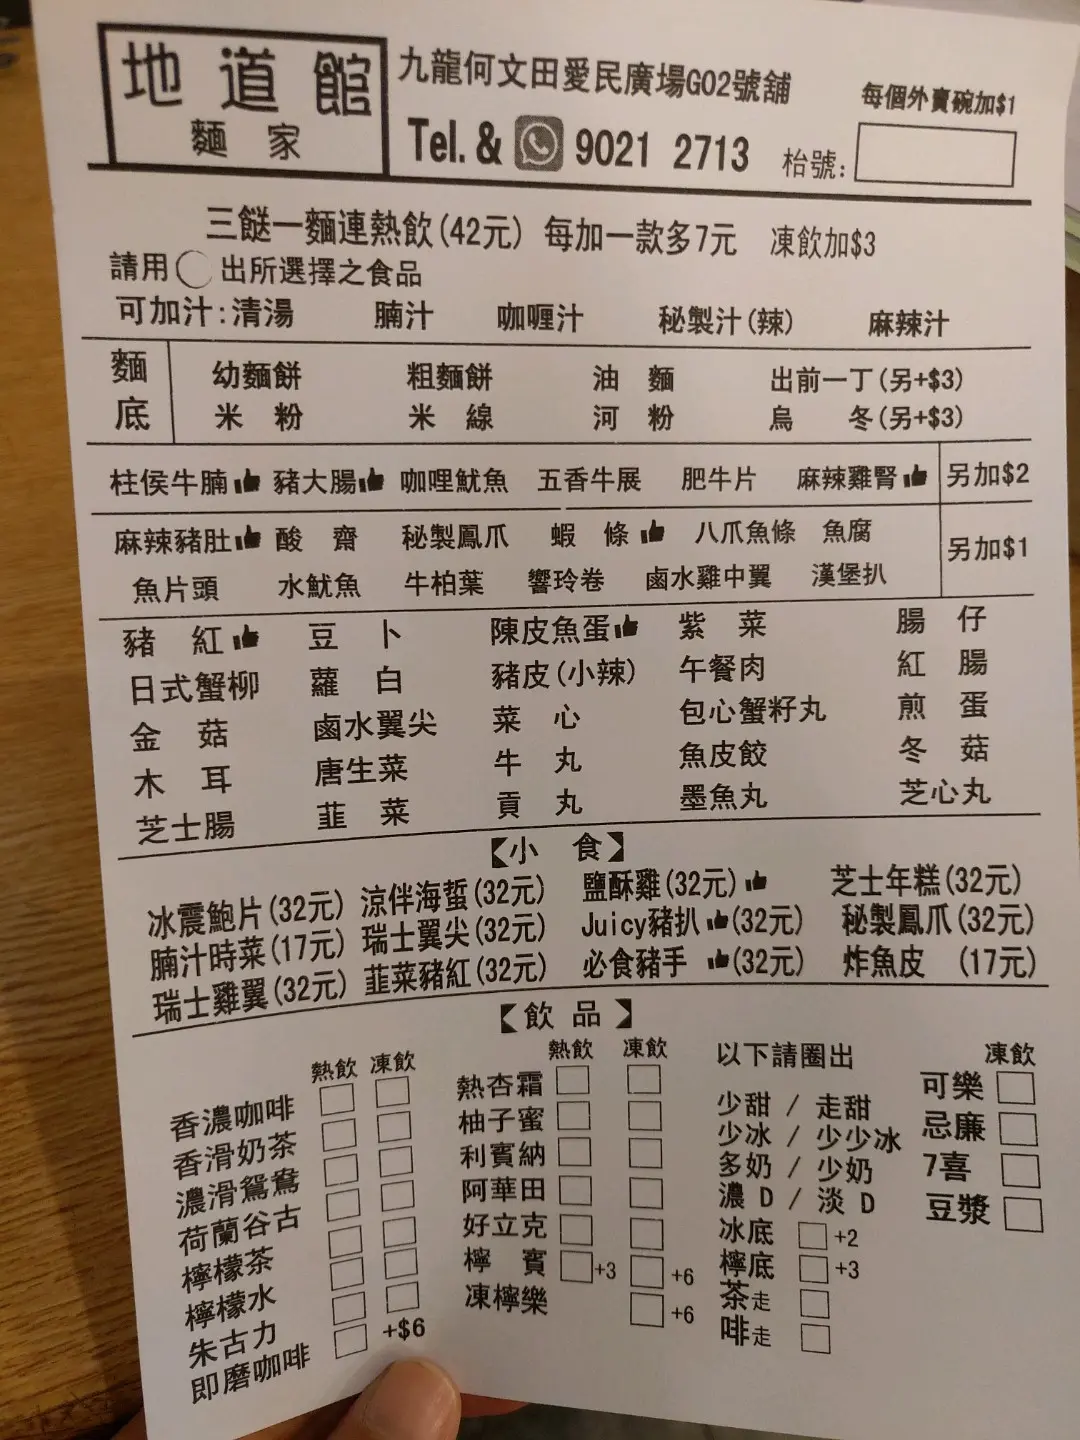 地道館
麵家
九龍何文田愛民廣場G02號舖
每個外賣碗加$1
Tel. & 9021 2713 枱號:
三餸一麵連熱飲(42元) 每加一款多7元 凍飲加$3
請用○出所選擇之食品
可加汁:清湯 腩汁 咖喱汁 秘製汁(辣) 麻辣汁
麵底
幼麵餅 粗麵餅 油麵 出前一丁(另+$3)
米粉 米線 河粉 烏冬(另+$3)
柱侯牛腩 豬大腸 咖哩魷魚 五香牛展 肥牛片 麻辣雞腎 另加$2
麻辣豬肚 酸齋 秘製鳳爪 蝦條 八爪魚條 魚腐 另加$1
魚片頭 水魷魚 牛柏葉 響玲卷 鹵水雞中翼 漢堡扒
豬紅 豆卜 陳皮魚蛋 紫菜 腸仔
日式蟹柳 蘿白 豬皮(小辣) 午餐肉 紅腸
金菇 鹵水翼尖 菜心 包心蟹籽丸 煎蛋
木耳 唐生菜 牛丸 魚皮餃 冬菇
芝士腸 韮菜 貢丸 墨魚丸 芝心丸
【小食】
冰震鮑片(32元) 涼伴海蜇(32元) 鹽酥雞(32元) 芝士年糕(32元)
腩汁時菜(17元) 瑞士翼尖(32元) Juicy豬扒(32元) 秘製鳳爪(32元)
瑞士雞翼(32元) 韮菜豬紅(32元) 必食豬手(32元) 炸魚皮(17元)
【飲品】
熱飲 凍飲
香濃咖啡
香滑奶茶
濃滑鴛鴦
荷蘭谷古
檸檬茶
檸檬水
朱古力
即磨咖啡 +$6
熱飲 凍飲
熱杏霜
柚子蜜
利賓納
阿華田
好立克
檸賓 +3 +6
凍檸樂 +6
以下請圈出
少甜 / 走甜
少冰 / 少少冰
多奶 / 少奶
濃 D / 淡 D
冰底 +2
檸底 +3
茶走
啡走
凍飲
可樂
忌廉
7喜
豆漿